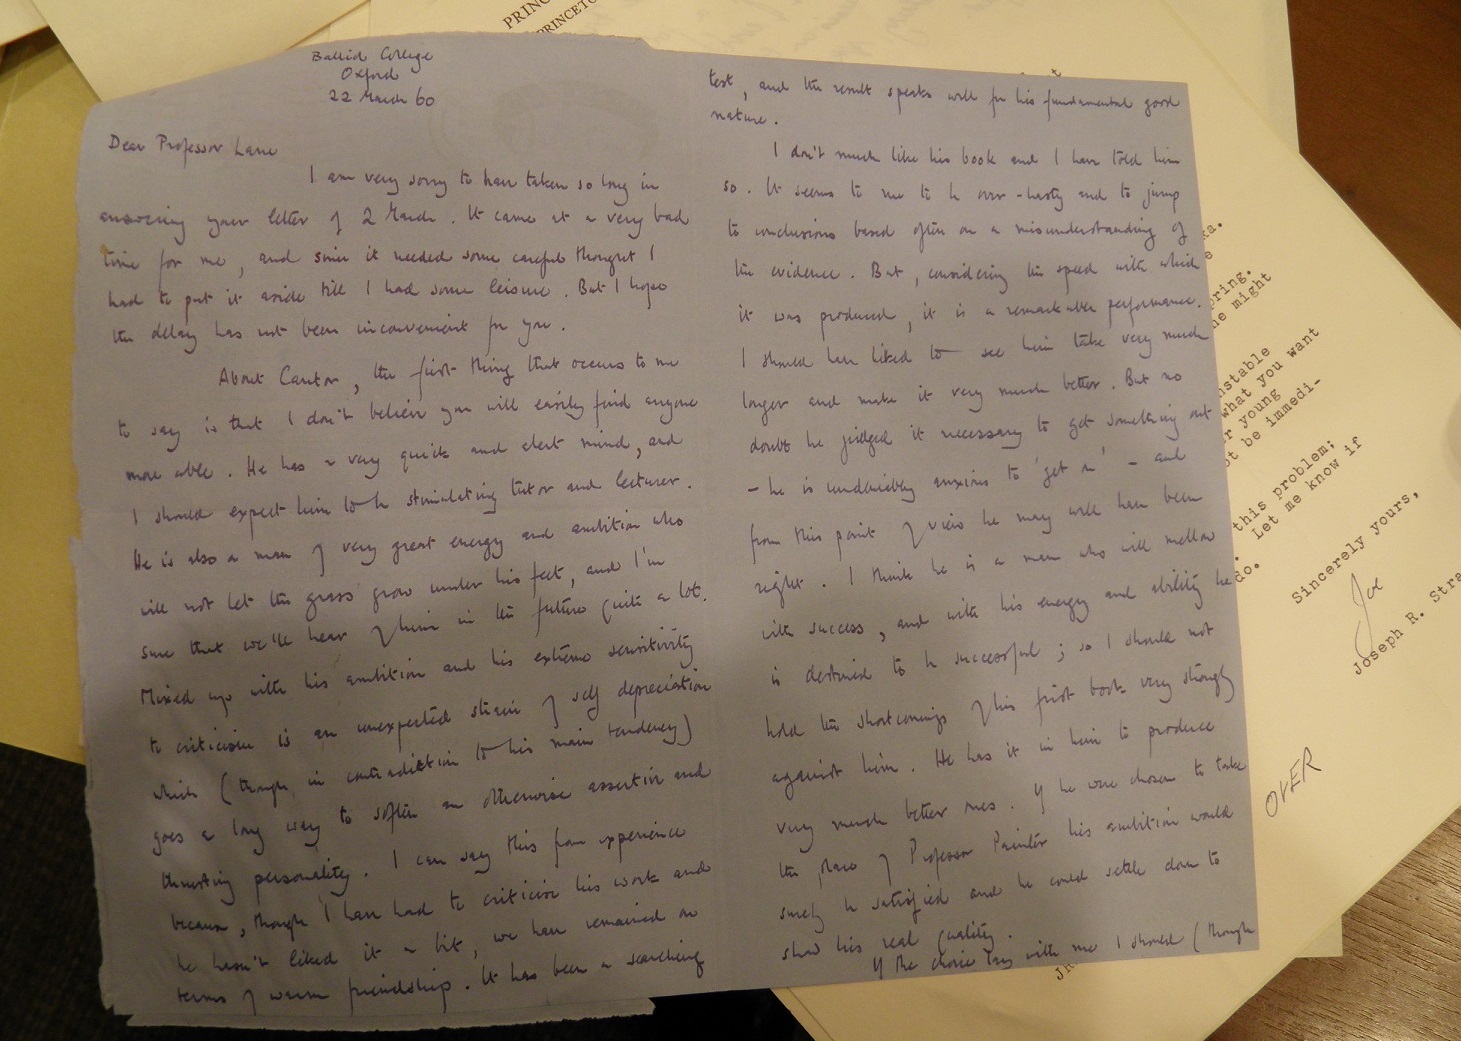 PRINCETO
Balliol College
Oxford
22 March 60
Dear Professor Lane
I am very sorry to have taken so long in
answering your letter of 2 March. It came at a very bad
time for me, and since it needed some careful thought I
had to put it aside till I had some leisure. But I hope
the delay has not been inconvenient for you.
About Cantor, the first thing that occurs to me
to say is that I don't believe you will easily find anyone
more able. He has a very quick and alert mind, and
I should expect him to be stimulating tutor and lecturer.
He is also a man of very great energy and ambition who
will not let the grass grow under his feet, and I'm
sure that we'll hear of him in the future quite a lot.
Mixed up with his ambition and his extreme sensitivity
to criticism is an unexpected strain of self depreciation
which (though in contradiction to his main tendency)
goes a long way to soften an otherwise assertive and
thrusting personality. I can say this from experience
because, though I have had to criticise his work and
he hasn't liked it a bit, we have remained on
terms of warm friendship. It has been a searching
test, and the result speaks well for his fundamental good
nature.
I don't much like his book and I have told him
so. It seems to me to be over-hasty and to jump
to conclusions based often on a misunderstanding of
the evidence. But, considering the speed with which
it was produced, it is a remarkable performance.
I should have liked to see him take very much
longer and make it very much better. But no
doubt he judged it necessary to get something out
- he is undeniably anxious to 'get on' - and
from this point of view he may well have been
right. I think he is a man who will mellow
with success, and with his energy and ability he
is destined to be successful; so I should not
hold the shortcomings of his first book very strongly
against him. He has it in him to produce
very much better ones. If he were chosen to take
the place of Professor Painter his ambition would
surely be satisfied and he could settle down to
show his real quality.
If the choice lay with me I should (though
ka.
pring.
he might
nstable
what you want
r young
ot be immedi-
this problem;
Let me know if
do.
Sincerely yours,
Joe
Joseph R. Stra
OVER